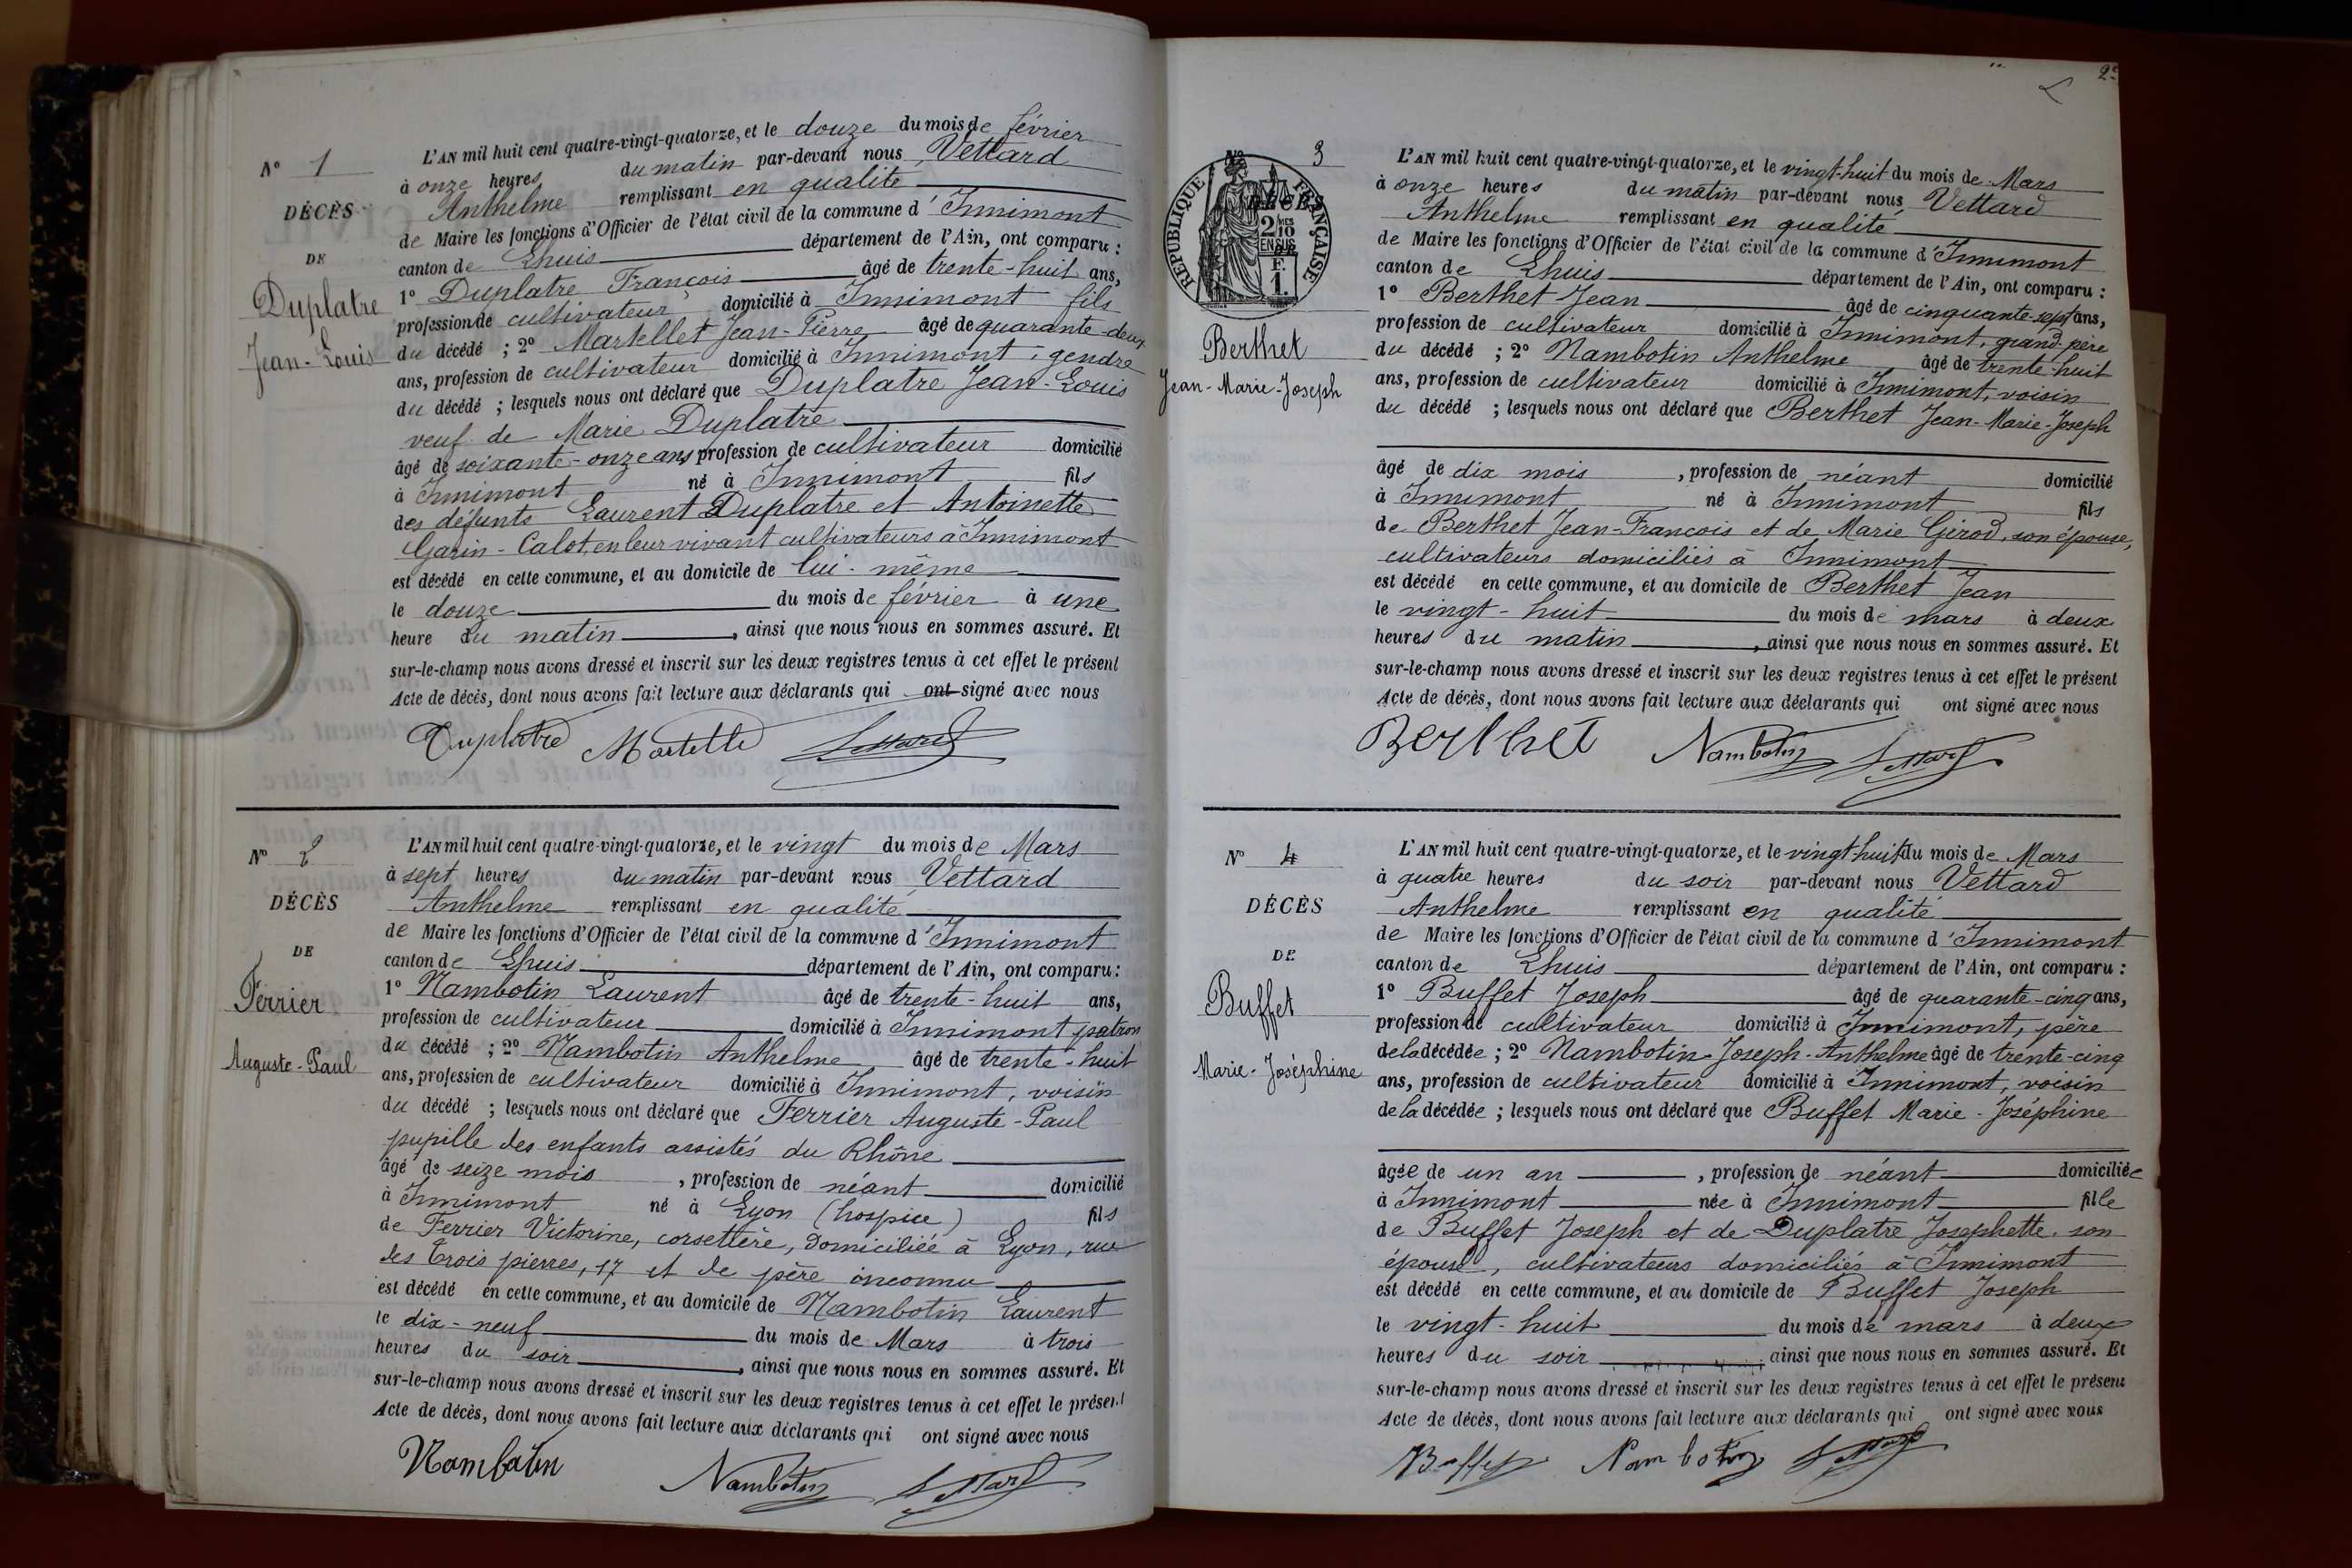 N° 1
DÉCÈS
DE
Duplatre
Jean-Louis
L'AN mil huit cent quatre-vingt-quatorze, et le douze du mois de février
à onze heures du matin par-devant nous Vettard
Anthelme remplissant en qualité
de Maire les fonctions d'Officier de l'état civil de la commune d'Innimont
canton de Lhuis département de l'Ain, ont comparu :
1° Duplatre François âgé de trente-huit ans,
profession de cultivateur domicilié à Innimont fils
du décédé ; 2° Martellet Jean-Pierre âgé de quarante-deux
ans, profession de cultivateur domicilié à Innimont, gendre
du décédé ; lesquels nous ont déclaré que Duplatre Jean-Louis
veuf de Marie Duplatre
âgé de soixante-onze ans, profession de cultivateur domicilié
à Innimont né à Innimont fils
des défunts Laurent Duplatre et Antoinette
Garin-Calot, en leur vivant cultivateurs à Innimont
est décédé en cette commune, et au domicile de lui-même
le douze du mois de février à une
heure du matin, ainsi que nous nous en sommes assuré. Et
sur-le-champ nous avons dressé et inscrit sur les deux registres tenus à cet effet le présent
Acte de décès, dont nous avons fait lecture aux déclarants qui ont signé avec nous
Duplatre Martelle Vettard
N° 2
DÉCÈS
DE
Ferrier
Auguste-Paul
L'AN mil huit cent quatre-vingt-quatorze, et le vingt du mois de Mars
à sept heures du matin par-devant nous Vettard
Anthelme remplissant en qualité
de Maire les fonctions d'Officier de l'état civil de la commune d'Innimont
canton de Lhuis département de l'Ain, ont comparu :
1° Nambotin Laurent âgé de trente-huit ans,
profession de cultivateur domicilié à Innimont patron
du décédé ; 2° Nambotin Anthelme âgé de trente-huit
ans, profession de cultivateur domicilié à Innimont, voisin
du décédé ; lesquels nous ont déclaré que Ferrier Auguste-Paul
pupille des enfants assistés du Rhône
âgé de seize mois, profession de néant domicilié
à Innimont né à Lyon (hospice) fils
de Ferrier Victorine, corsetière, domiciliée à Lyon, rue
des Trois pierres, 17 et de père inconnu
est décédé en cette commune, et au domicile de Nambotin Laurent
le dix-neuf du mois de Mars à trois
heures du soir, ainsi que nous nous en sommes assuré. Et
sur-le-champ nous avons dressé et inscrit sur les deux registres tenus à cet effet le présent
Acte de décès, dont nous avons fait lecture aux déclarants qui ont signé avec nous
Nambotin Nambotin Vettard
2e
N° 3
DÉCÈS
DE
RÉPUBLIQUE FRANÇAISE
2 MES 10 EN SUS
F. 1.
Berthet
Jean-Marie-Joseph
L'AN mil huit cent quatre-vingt-quatorze, et le vingt-huit du mois de Mars
à onze heures du matin par-devant nous Vettard
Anthelme remplissant en qualité
de Maire les fonctions d'Officier de l'état civil de la commune d'Innimont
canton de Lhuis département de l'Ain, ont comparu :
1° Berthet Jean âgé de cinquante-sept ans,
profession de cultivateur domicilié à Innimont, grand-père
du décédé ; 2° Nambotin Anthelme âgé de trente-huit
ans, profession de cultivateur domicilié à Innimont, voisin
du décédé ; lesquels nous ont déclaré que Berthet Jean-Marie-Joseph
âgé de dix mois, profession de néant domicilié
à Innimont né à Innimont fils
de Berthet Jean-François et de Marie Girod, son épouse,
cultivateurs domiciliés à Innimont
est décédé en cette commune, et au domicile de Berthet Jean
le vingt-huit du mois de mars à deux
heures du matin, ainsi que nous nous en sommes assuré. Et
sur-le-champ nous avons dressé et inscrit sur les deux registres tenus à cet effet le présent
Acte de décès, dont nous avons fait lecture aux déclarants qui ont signé avec nous
Berthet Nambotin Vettard
N° 4
DÉCÈS
DE
Buffet
Marie-Joséphine
L'AN mil huit cent quatre-vingt-quatorze, et le vingt-huit du mois de Mars
à quatre heures du soir par-devant nous Vettard
Anthelme remplissant en qualité
de Maire les fonctions d'Officier de l'état civil de la commune d'Innimont
canton de Lhuis département de l'Ain, ont comparu :
1° Buffet Joseph âgé de quarante-cinq ans,
profession de cultivateur domicilié à Innimont, père
de la décédée ; 2° Nambotin Joseph-Anthelme âgé de trente-cinq
ans, profession de cultivateur domicilié à Innimont, voisin
de la décédée ; lesquels nous ont déclaré que Buffet Marie-Joséphine
âgée de un an, profession de néant domiciliée
à Innimont née à Innimont fille
de Buffet Joseph et de Duplatre Josephette, son
épouse, cultivateurs domiciliés à Innimont
est décédé en cette commune, et au domicile de Buffet Joseph
le vingt-huit du mois de mars à deux
heures du soir, ainsi que nous nous en sommes assuré. Et
sur-le-champ nous avons dressé et inscrit sur les deux registres tenus à cet effet le présent
Acte de décès, dont nous avons fait lecture aux déclarants qui ont signé avec nous
Buffet Nambotin Vettard